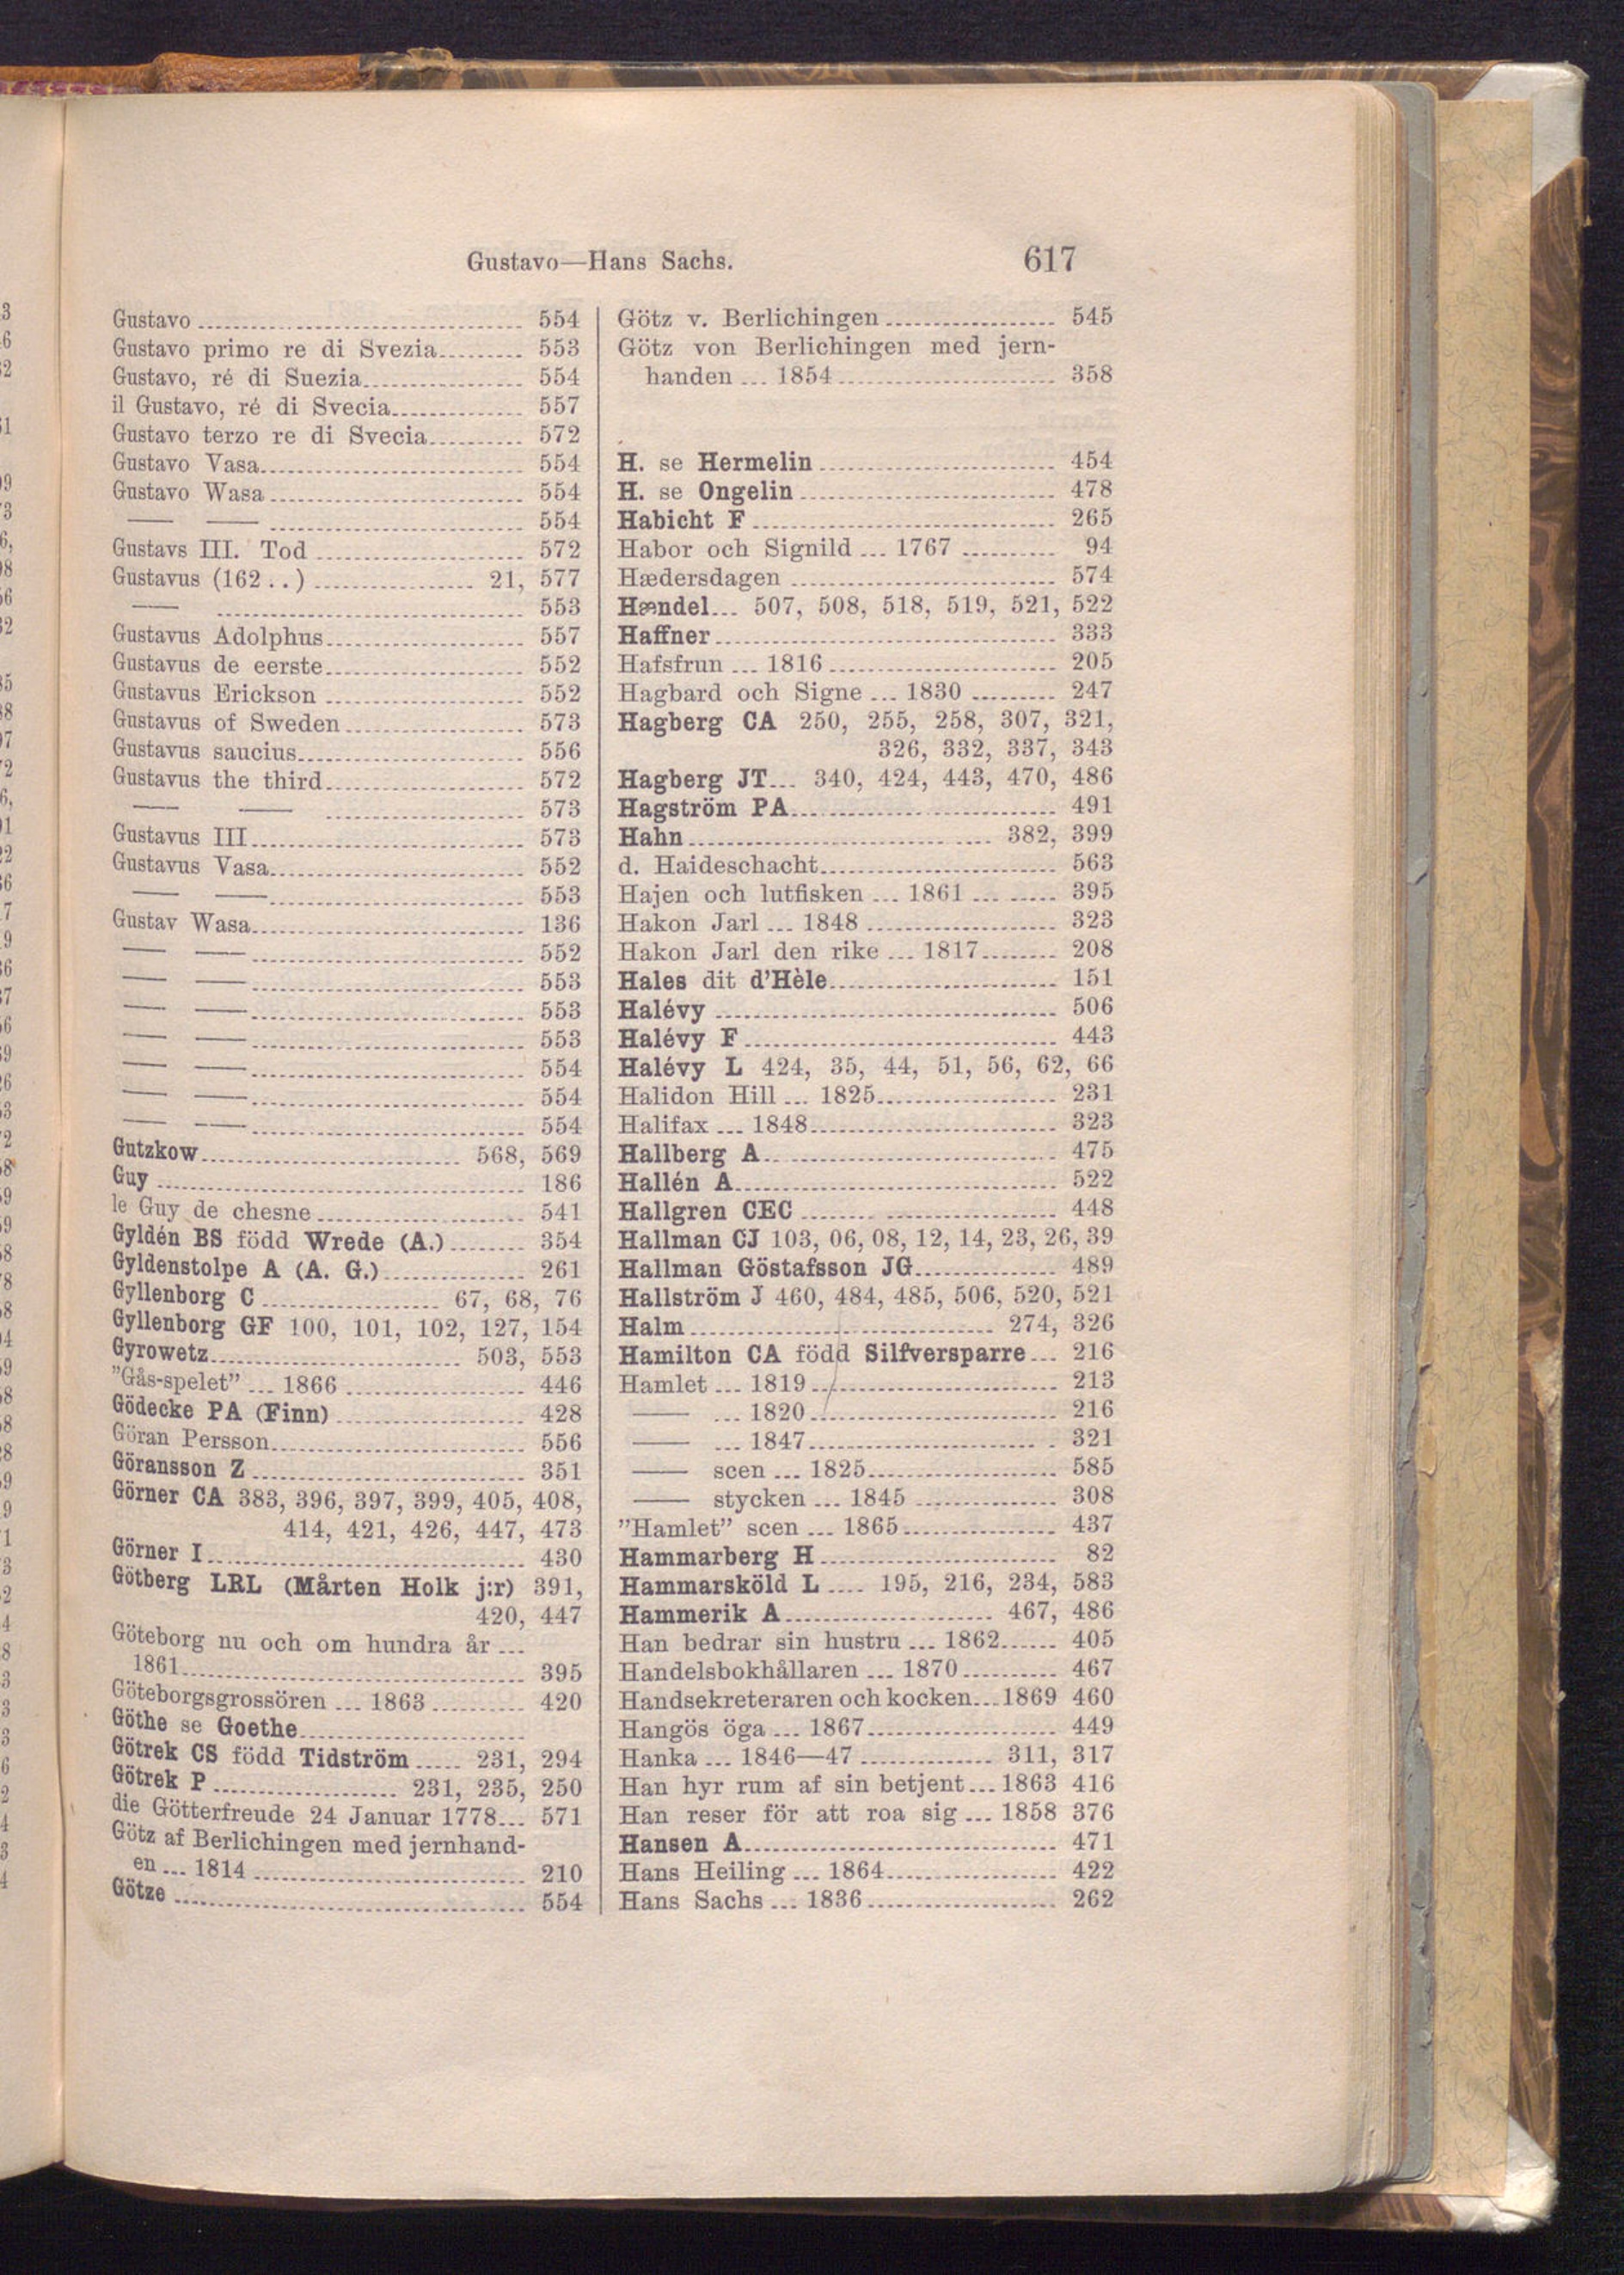 Gustavo—Hans Sachs. 617
Gustavo 554
Gustavo primo re di Svezia 553
Gustavo, ré di Suezia 554
il Gustavo, ré di Svecia 557
Gustavo terzo re di Svecia 572
Gustavo Vasa 554
Gustavo Wasa 554
— — 554
Gustavs III. Tod 572
Gustavus (162 . .) 21, 577
— 553
Gustavus Adolphus 557
Gustavus de eerste 552
Gustavus Erickson 552
Gustavus of Sweden 573
Gustavus saucius 556
Gustavus the third 572
— — 573
Gustavus III 573
Gustavus Vasa 552
— — 553
Gustav Wasa 136
— — 552
— — 553
— — 553
— — 553
— — 554
— — 554
— — 554
Gutzkow 568, 569
Guy 186
le Guy de chesne 541
Gyldén BS född Wrede (A.) 354
Gyldenstolpe A (A. G.) 261
Gyllenborg C 67, 68, 76
Gyllenborg GF 100, 101, 102, 127, 154
Gyrowetz 503, 553
"Gås-spelet" ... 1866 446
Gödecke PA (Finn) 428
Göran Persson 556
Göransson Z 351
Görner CA 383, 396, 397, 399, 405, 408,
414, 421, 426, 447, 473
Görner I 430
Götberg LRL (Mårten Holk j:r) 391,
420, 447
Göteborg nu och om hundra år ...
1861 395
Göteborgsgrossören ... 1863 420
Göthe se Goethe
Götrek CS född Tidström 231, 294
Götrek P 231, 235, 250
die Götterfreude 24 Januar 1778... 571
Götz af Berlichingen med jernhand-
en ... 1814 210
Götze 554
Götz v. Berlichingen 545
Götz von Berlichingen med jern-
handen ... 1854 358
H. se Hermelin 454
H. se Ongelin 478
Habicht F 265
Habor och Signild ... 1767 94
Hædersdagen 574
Hændel... 507, 508, 518, 519, 521, 522
Haffner 333
Hafsfrun ... 1816 205
Hagbard och Signe ... 1830 247
Hagberg CA 250, 255, 258, 307, 321,
326, 332, 337, 343
Hagberg JT... 340, 424, 443, 470, 486
Hagström PA 491
Hahn 382, 399
d. Haideschacht 563
Hajen och lutfisken ... 1861 ... 395
Hakon Jarl ... 1848 323
Hakon Jarl den rike ... 1817 208
Hales dit d'Hèle 151
Halévy 506
Halévy F 443
Halévy L 424, 35, 44, 51, 56, 62, 66
Halidon Hill ... 1825 231
Halifax ... 1848 323
Hallberg A 475
Hallén A 522
Hallgren CEC 448
Hallman CJ 103, 06, 08, 12, 14, 23, 26, 39
Hallman Göstafsson JG 489
Hallström J 460, 484, 485, 506, 520, 521
Halm 274, 326
Hamilton CA född Silfversparre... 216
Hamlet ... 1819 213
— ... 1820 216
— ... 1847 321
— scen ... 1825 585
— stycken ... 1845 308
"Hamlet" scen ... 1865 437
Hammarberg H 82
Hammarsköld L 195, 216, 234, 583
Hammerik A 467, 486
Han bedrar sin hustru ... 1862 405
Handelsbokhållaren ... 1870 467
Handsekreteraren och kocken...1869 460
Hangös öga ... 1867 449
Hanka ... 1846—47 311, 317
Han hyr rum af sin betjent...1863 416
Han reser för att roa sig ... 1858 376
Hansen A 471
Hans Heiling ... 1864 422
Hans Sachs ... 1836 262